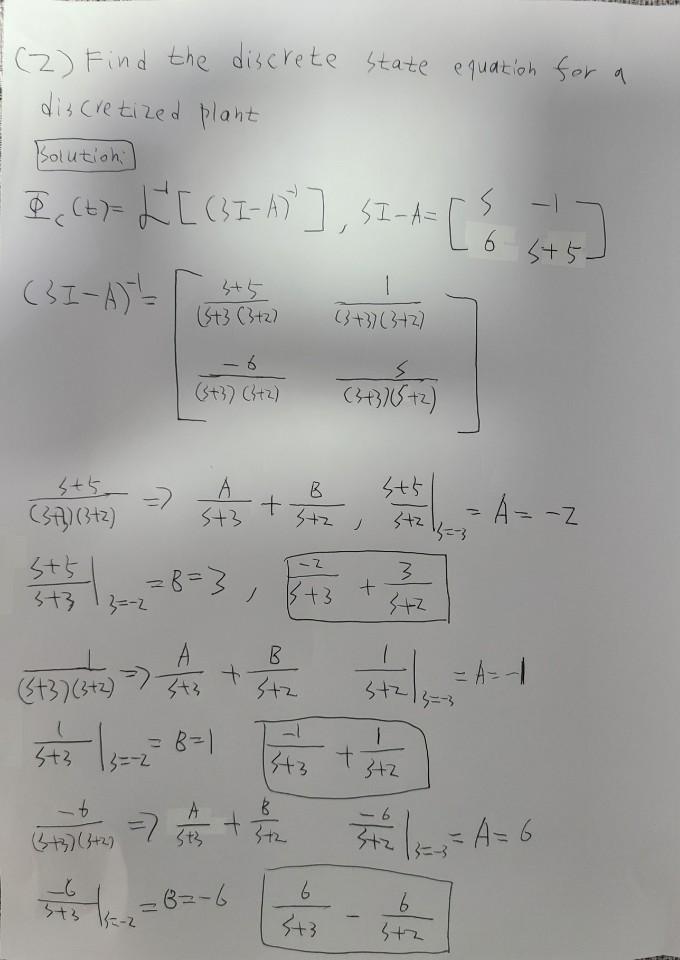 (2) Find the discrete state equation for a
discretized plant
Solution:
Φ_c(t) = L^-1 [(SI-A)^-1], SI-A = [S -1
6 S+5]
(SI-A)^-1 = [(S+5)/((S+3(S+2)) 1/((S+3)(S+2))
-6/((S+3)(S+2)) S/((S+3)(S+2))]
(S+5)/((S+3)(S+2)) => A/(S+3) + B/(S+2), (S+5)/(S+2)|S=-3 = A = -2
(S+5)/(S+3)|S=-2 = B = 3, -2/(S+3) + 3/(S+2)
1/((S+3)(S+2)) => A/(S+3) + B/(S+2) 1/(S+2)|S=-3 = A = -1
1/(S+3)|S=-2 = B = 1 -1/(S+3) + 1/(S+2)
-6/((S+3)(S+2)) => A/(S+3) + B/(S+2) -6/(S+2)|S=-3 = A = 6
-6/(S+3)|S=-2 = B = -6 6/(S+3) - 6/(S+2)